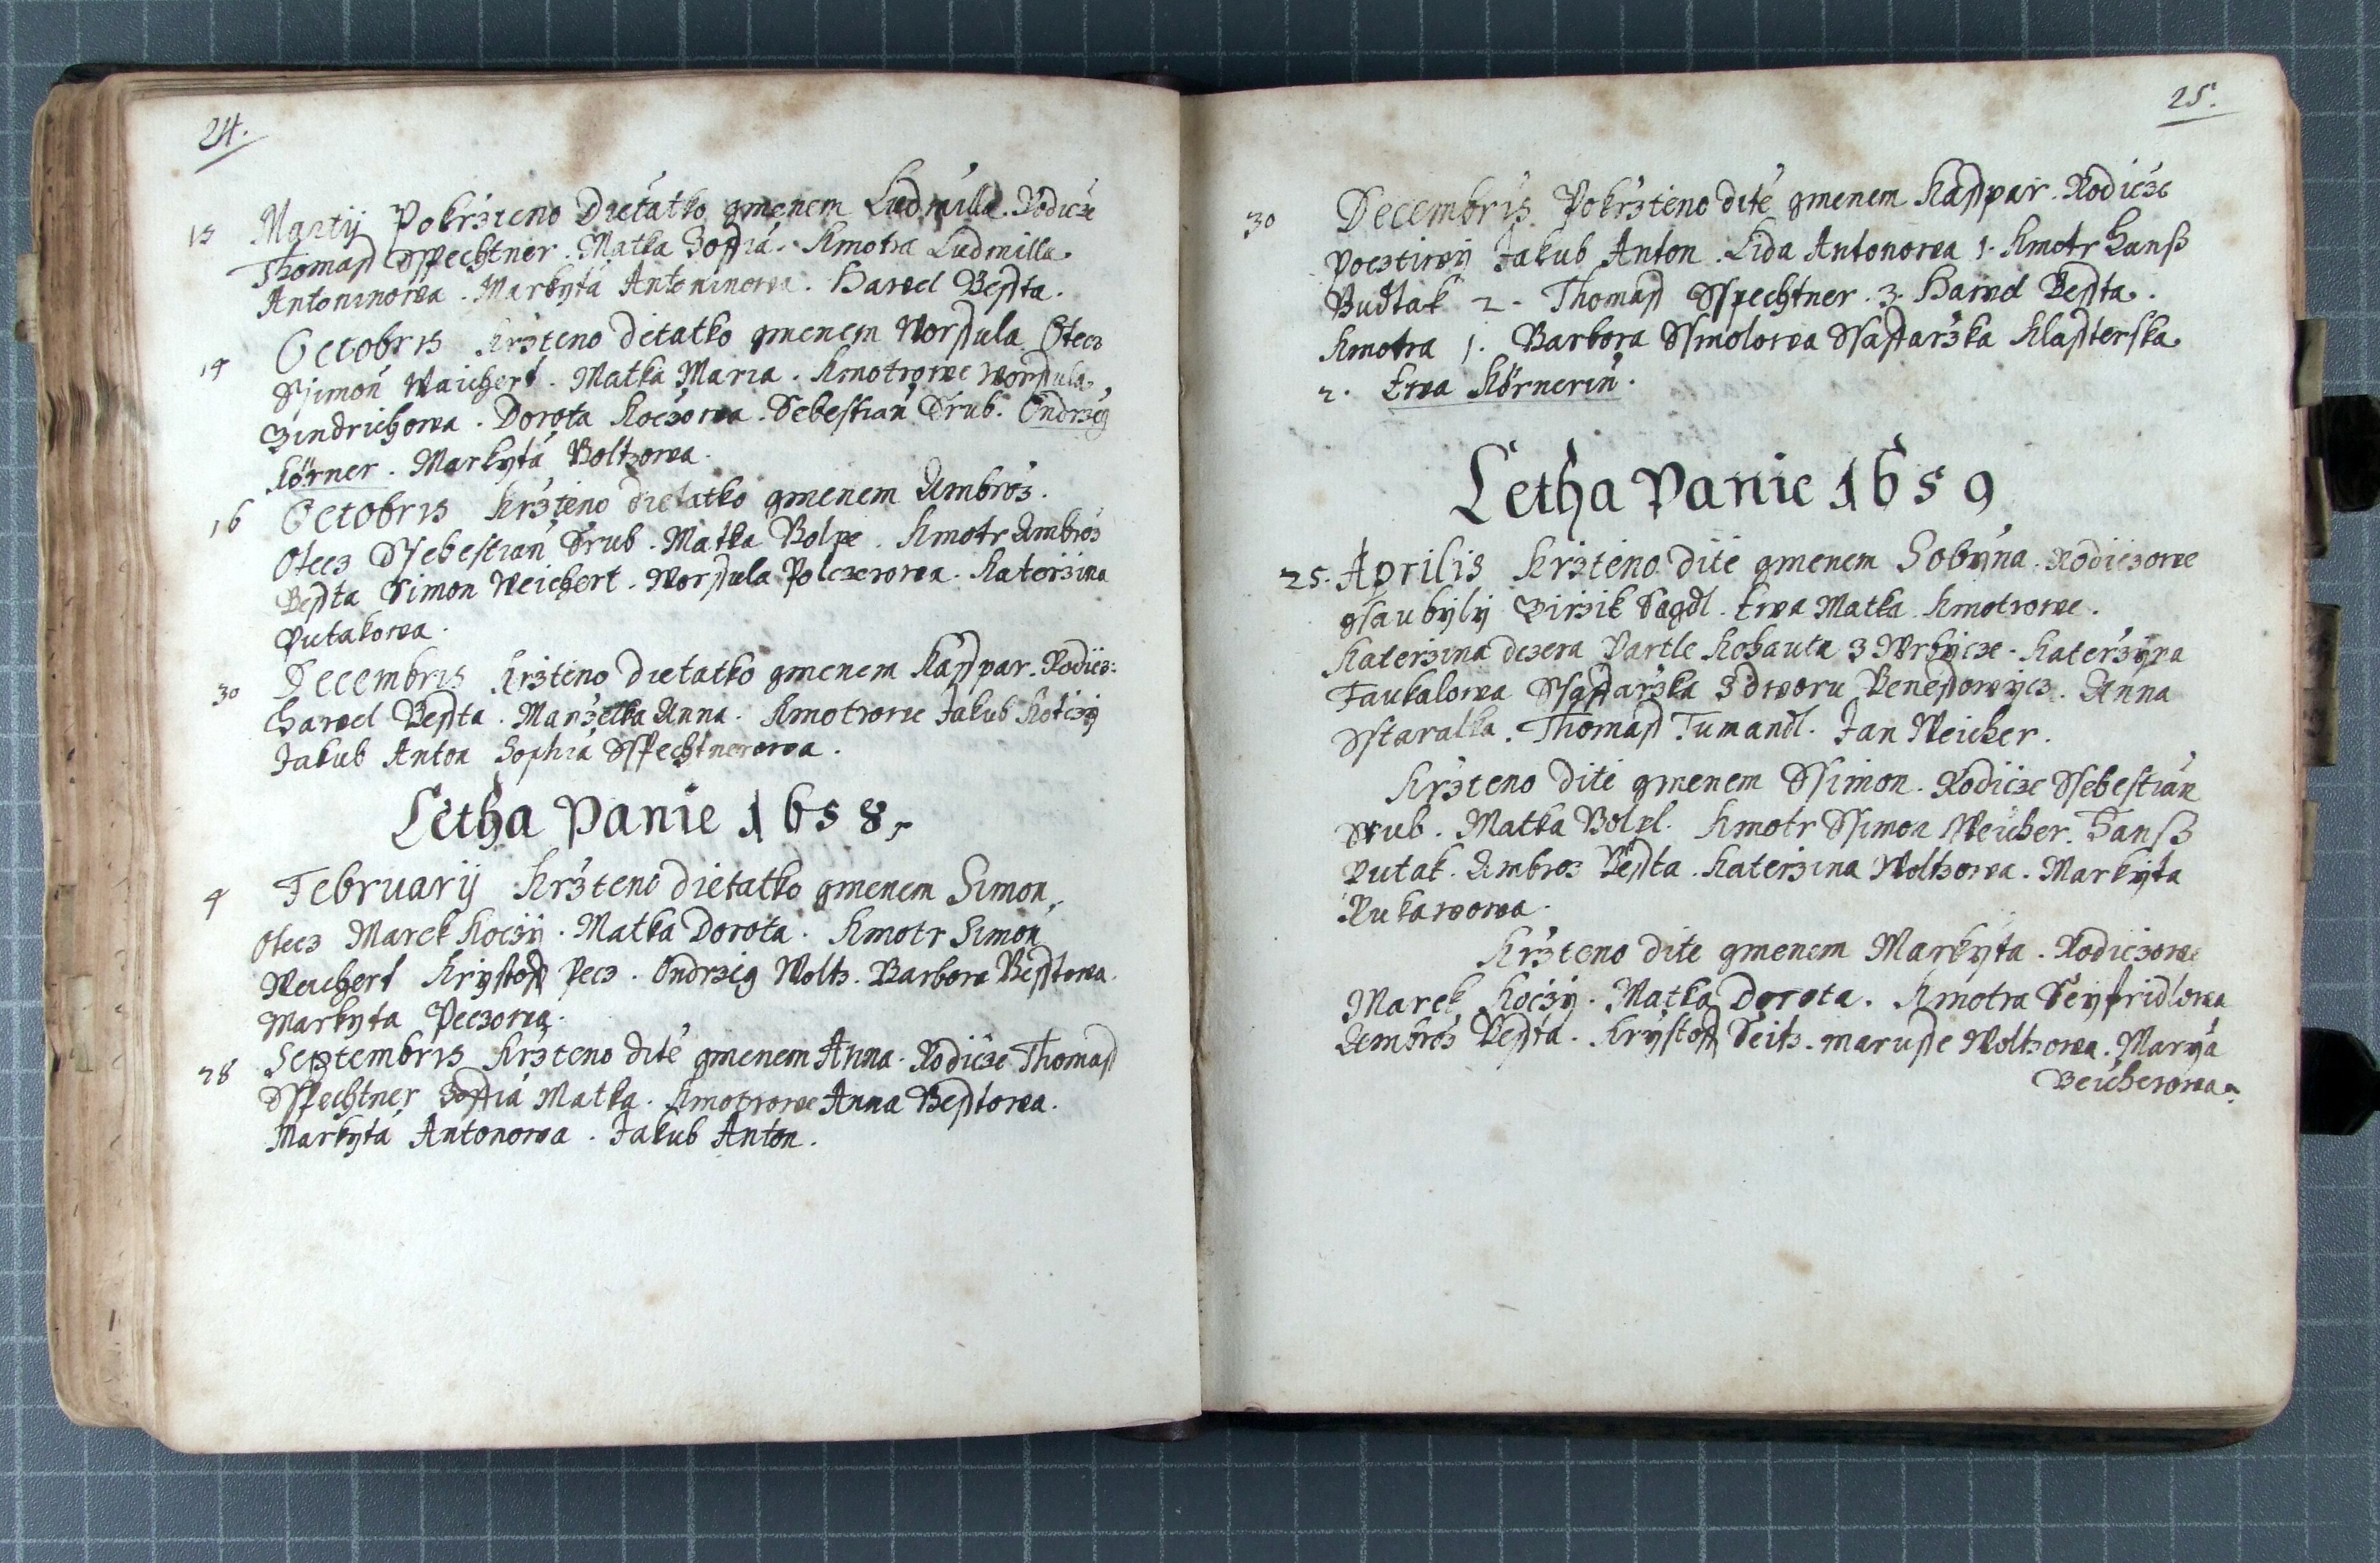 24.
15 Martij Pokrzteno Dietatko gmenem Ludmilla. Rodicze
Thomaß Sspechtner. Matka Zoffia. Kmotra Ludmilla
Antoninowa. Markyta Antoninowa. Hawel Beßta.
14 Octobris Krzteno dietatko gmenem Worßula Otecz
Ssimon Waichert. Matka Maria. Kmotrowe Worßula
Zindrichowa. Dorota Koczowa. Sebestian Srub. Ondrzeg
Körner. Markyta Boltzowa.
16 Octobris Krzteno dietatko gmenem Ambroz.
Otecz Ssebestian Srub. Matka Bolpe. Kmotr Ambroz
Beßta Simon Weichert. Worßula Polczerowa. Katerzina
Putakowa.
30 Decembris Krzteno dietatko gmenem Kaßpar. Rodicz:
Hawel Beßta. Manzelka Anna. Kmotrowe Jakub Koczy
Jakub Anton Sophia Sspechtnerowa.
Letha Panie 1658,
4 Februarij Krzteno dietatko gmenem Simon,
Otecz Marek Koczy. Matka Dorota. Kmotr Simon
Weichert Krystoff Pecz. Ondrzeg Woltz. Barbora Beßtowa.
Markyta Peczowa.
28 Septembris Krzteno dite gmenem Anna. Rodicze Thomaß
Sspechtner Zoffia Matka. Kmotrowe Anna Beßtowa.
Markyta Antonowa. Jakub Anton.
25.
30 Decembris Pokrzteno dite gmenem Kaßpar. Rodicze
Pocztiwy Jakub Anton. Lida Antonowa 1. Kmotr Hanß
Budtak 2. Thomaß Sspechtner. 3. Hawel Beßta.
Kmotra 1. Barbora Ssmolowa Ssaffarzka Klaßterska
2. Ewa Körnerin.
Letha Panie 1659
25. Aprilis Krzteno dite gmenem Sobyna. Rodiczowe
gsau byly Girzik Sagdl. Ewa Matka Kmotrowe.
Katerzina dczera Partle Kohauta z Wrbicze. Katerzyna
Faukalowa Ssaffarzka z dworu Beneßowycz. Anna
Sstaralka. Thomaß Tumandl. Jan Weicher.
Krzteno dite gmenem Ssimon. Rodicze Ssebestian
Srub. Matka Bolpl. Kmotr Ssimon Weicher. Hanß
Putak. Ambroz Beßta. Katerzina Woltzowa. Markyta
Rukawowa.
Krzteno dite gmenem Markyta. Rodiczowe
Marek Koczy. Matka Dorota. Kmotra Seyfridlowa
Ambroz Beßta. Krystoff Seitz. Maruße Woltzowa. Marya
Beicherowa.